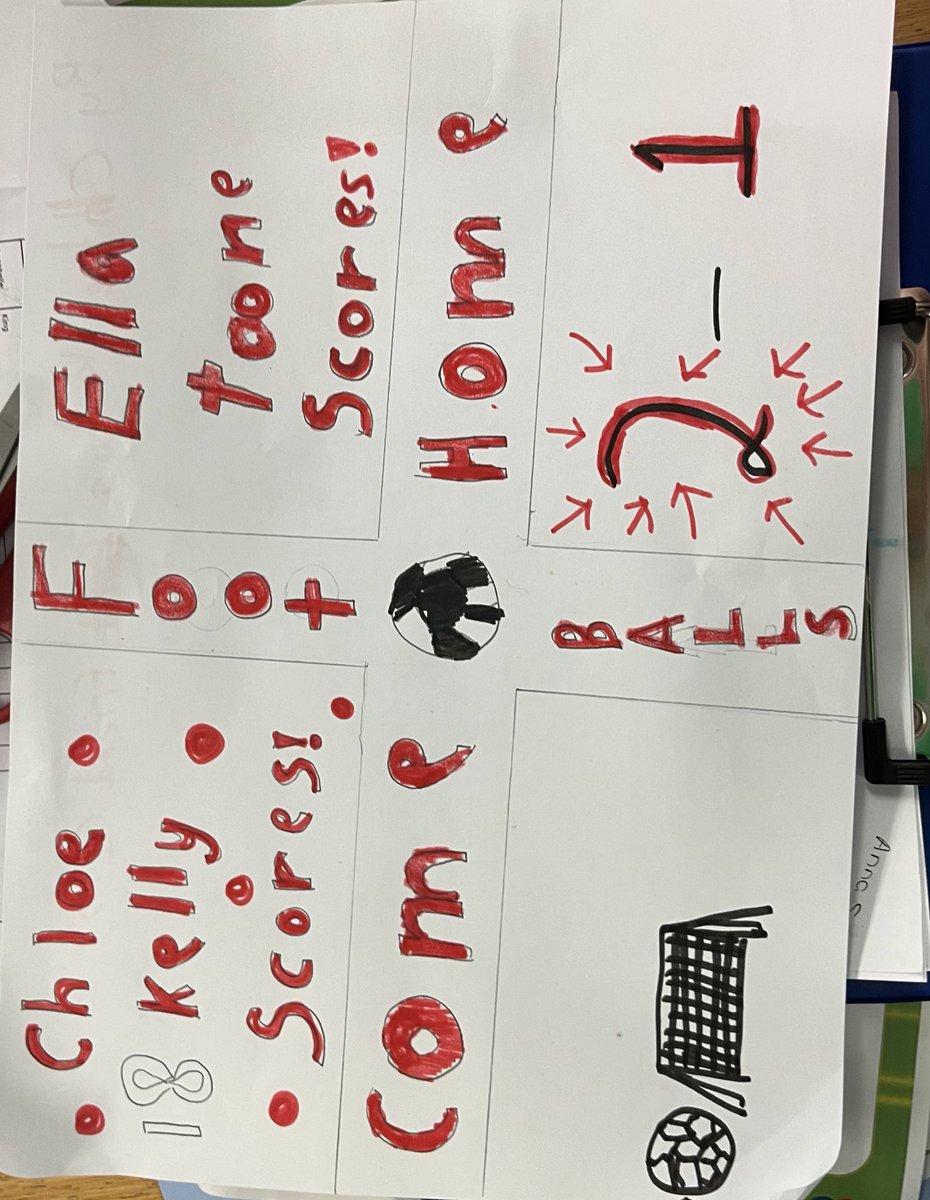 Chloe
18 Kelly
Scores!
Foot
Ella
toone
Scores!
Come Home
BALLS
2 - 1
King
Anna